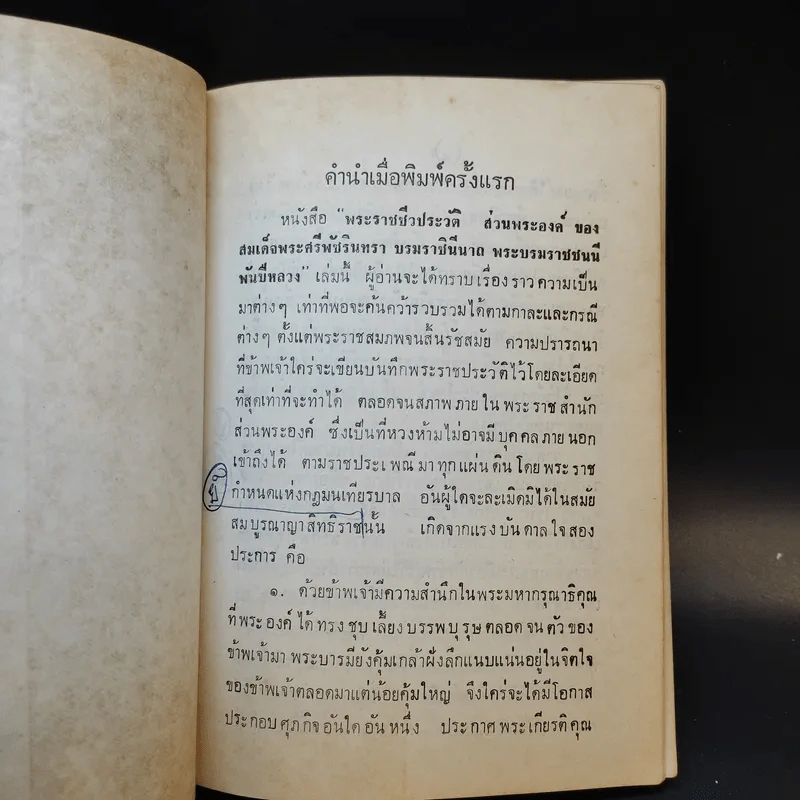 คำนำเมื่อพิมพ์ครั้งแรก
หนังสือ "พระราชชีวประวัติ ส่วนพระองค์ ของ
สมเด็จพระศรีพัชรินทรา บรมราชินีนาถ พระบรมราชชนนี
พันปีหลวง" เล่มนี้ ผู้อ่านจะได้ทราบเรื่องราวความเป็น
มาต่างๆ เท่าที่พอจะค้นคว้ารวบรวมได้ตามกาละและกรณี
ต่างๆ ตั้งแต่พระราชสมภพจนสิ้นรัชสมัย ความปรารถนา
ที่ข้าพเจ้าใคร่จะเขียนบันทึกพระราชประวัติไว้โดยละเอียด
ที่สุดเท่าที่จะทำได้ ตลอดจนสภาพภายในพระราชสำนัก
ส่วนพระองค์ ซึ่งเป็นที่หวงห้ามไม่อาจมีบุคคลภายนอก
เข้าถึงได้ ตามราชประเพณีมาทุกแผ่นดินโดยพระราช
กำหนดแห่งกฎมนเทียรบาล อันผู้ใดจะละเมิดมิได้ในสมัย
สมบูรณาญาสิทธิราชนั้น เกิดจากแรงบันดาลใจสอง
ประการ คือ
๑. ด้วยข้าพเจ้ามีความสำนึกในพระมหากรุณาธิคุณ
ที่พระองค์ได้ทรงชุบเลี้ยงบรรพบุรุษตลอดจนตัวของ
ข้าพเจ้ามา พระบารมียังคุ้มเกล้าฝังลึกแนบแน่นอยู่ในจิตใจ
ของข้าพเจ้าตลอดมาแต่น้อยคุ้มใหญ่ จึงใคร่จะได้มีโอกาส
ประกอบศุภกิจอันใดอันหนึ่ง ประกาศพระเกียรติคุณ